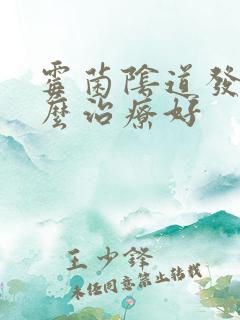 霉菌陰道發
麼治療好
王少鋒
未經同意禁止轉載